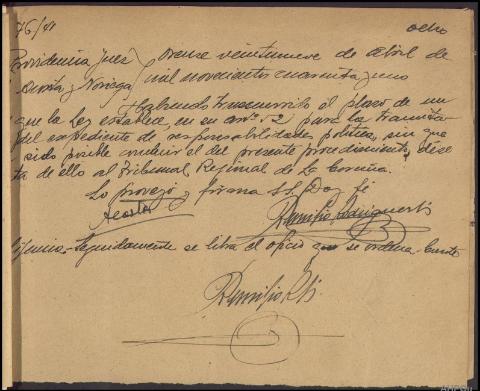 76/41 ocho
Providencia Juez Orense veintinueve de Abril de
Acosta y Noriega mil novecientos cuarenta y uno
Habiendo transcurrido el plazo de un
que la Ley establece, en su art. 52 para la tramita-
del expediente de responsabilidades politicas, sin que
sido posible concluir el del presente procedimiento, dése
ta de ello al Tribunal Regional de La Coruña.
Lo proveyó y firma S.S. Doy fe
Acosta Remigio Rodriguez
Seguidamente se libra el oficio que se ordena. Conste
Remigio